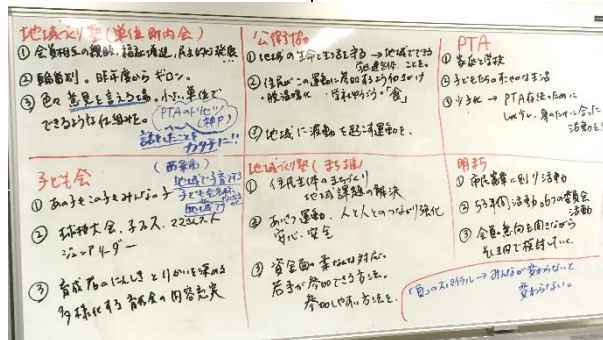 地域づくり塾(単位町内会)
① 会員相互の親睦、福祉増進、民主的な発展
② 輪番制。昨年度からギロン。
③ 色々意見を言える場。小さい単位で
できるような仕組を。
PTAのトリセツ
(神戸)
話したことを
カタチに!!
公衛協
① 地域の生命と生活を守る → 地域でできる
ことを。
② 住民がこの運動に参加するようよびかけ
・脱温暖化 「食」
③ 地域に波動を起こす運動を。
PTA
① 家庭と学校
② 子どもたちの幸せな生活
③ 少子化 → PTA存続のために
身のたけに合った
活動を!
子ども会
(西条市)
地域で子育てする
① あの子もこの子もみんなの子
② 球技大会、子フェス
ジュニアリーダー
③ 育成者のにんしきとりかいを深める
多様化する育成会の内容充実
地域づくり塾(まち推)
① 住民主体のまちづくり
地域課題の解決
② あいさつ運動、人と人とのつながり強化
安心・安全
③ 資金面の柔なんな対応。
若手が参加できる方法。
参加しやすい方法を。
明まち
① 市民憲章に則り活動
② 6つの委員会
活動
③ 会員の意向を聞きながら
検討していく。
「負」のスパイラル → みんなが変わらないと
変わらない。